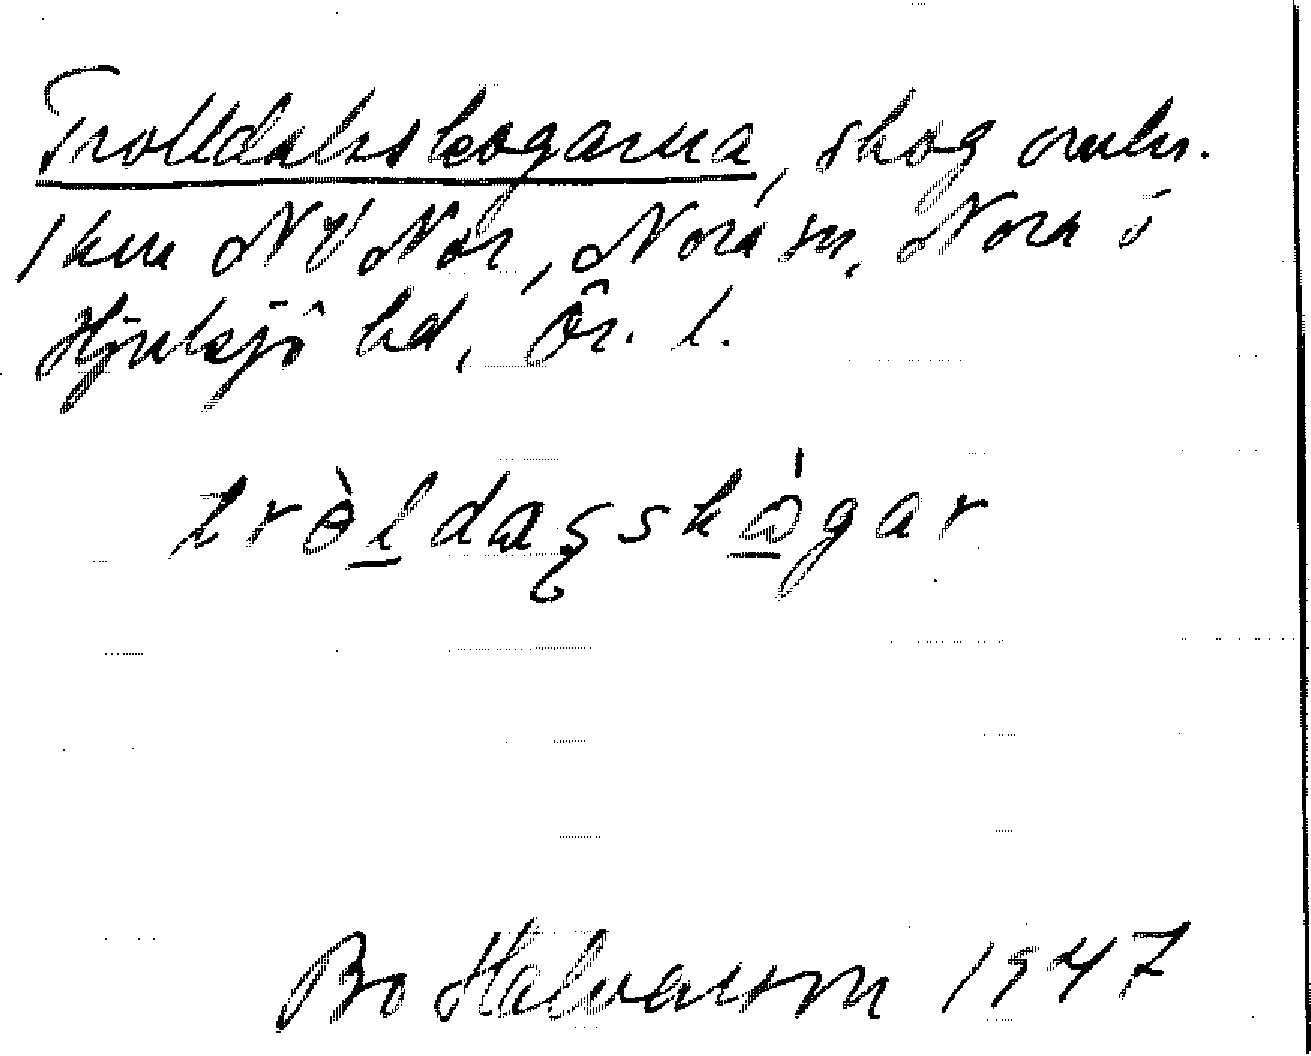 Trolldalsskogarna, skog omkr.
1 km NV Nor, Nora sn, Nora ö
Hjulsjö hd, Ör. l.
tròldaʂskógar
Bo Halvarson 1947